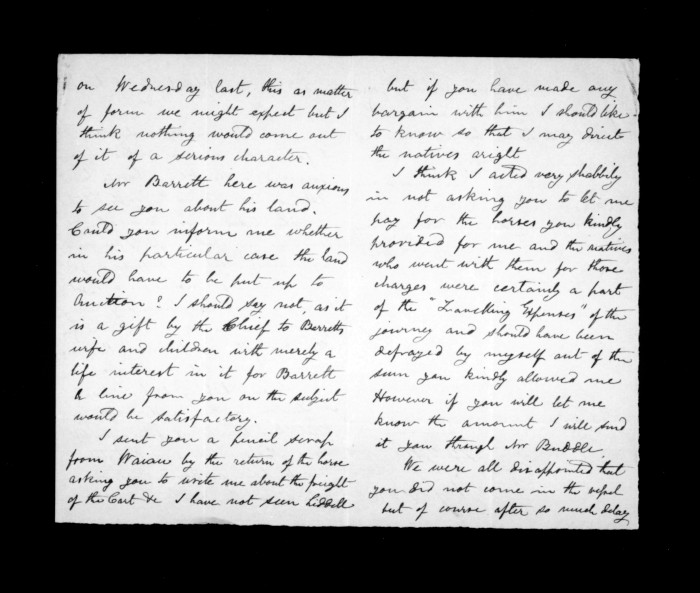 on Wednesday last, this as matter
of form we might expect but I
think nothing would come out
of it of a serious character.
Mr Barrett here was anxious
to see you about his land.
Could you inform me whether
in his particular case the land
would have to be put up to
Auction? I should say not, as it
is a gift by the Chief to Barretts
wife and children with merely a
life interest in it for Barrett
A line from you on the subject
would be satisfactory.
I sent you a pencil scrap
from Waiau by the return of the horse
asking you to write me about the freight
of the Cart &c I have not seen Liddell
but if you have made any
bargain with him I should like
to know so that I may direct
the natives aright
I think I acted very shabbily
in not asking you to let me
pay for the horses you kindly
provided for me and the natives
who went with them for those
charges were certainly a part
of the "Travelling Expenses" of the
journey and should have been
defrayed by myself out of the
sum you kindly allowed me
However if you will let me
know the amount I will send
it you through Mr Buddle.
We were all disappointed that
you did not come in the vessel
but of course after so much delay